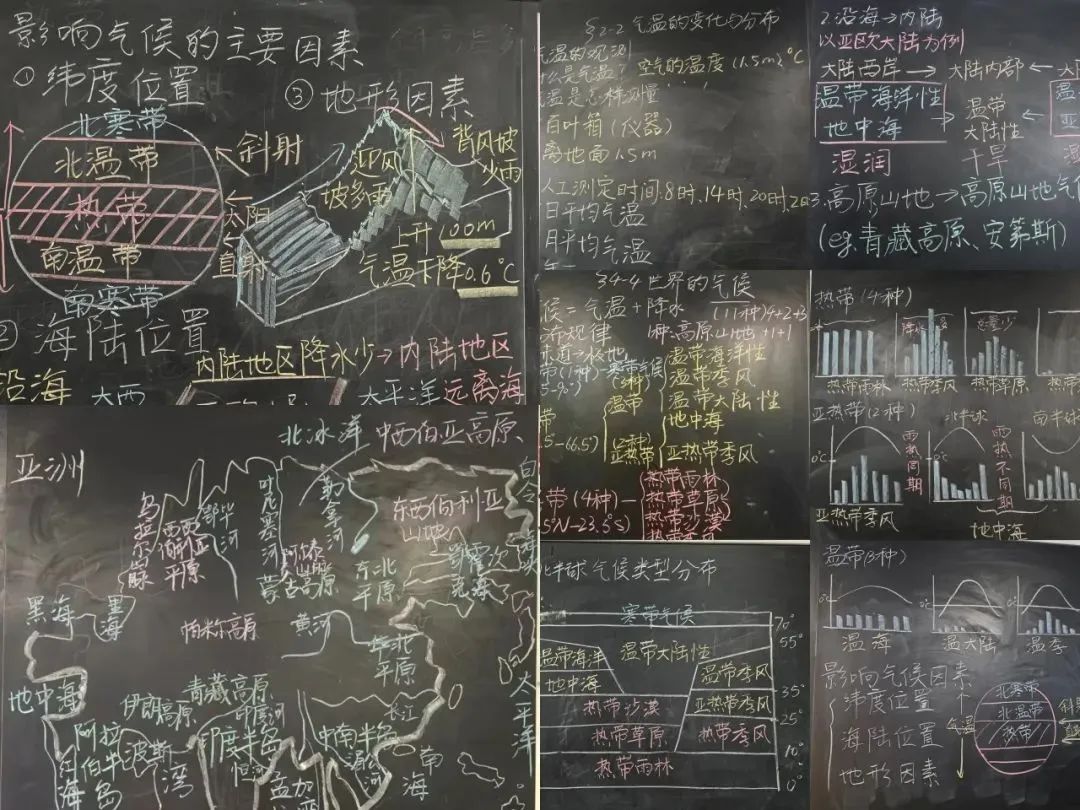 影响气候的主要因素
①纬度位置
③地形因素
北寒带
北温带
热带
南温带
南寒带
斜射
太阳
直射
迎风
坡多雨
背风坡
少雨
上升100m
气温下降0.6°C
②海陆位置
内陆地区降水少→内陆地区
沿海
大西
太平洋
远离海
§2-2 气温的变化与分布
气温的观测
什么是气温?
空气的温度(1.5m)°C
气温是怎样测量
百叶箱(仪器)
离地面1.5m
人工测定时间:8时、14时、20时、2
日平均气温
月平均气温
2.沿海→内陆
以亚欧大陆为例
大陆两岸→大陆内部←大
温带海洋性
地中海
温带
大陆性
湿润
干旱
3.高原山地→高原山地气
(eg.青藏高原、安第斯)
§4-4 世界的气候
候=气温+降水
(11种)4+2+3
1种:高原山地+1+1
带(1种)-寒带气候
(3种)
温带
温带海洋性
温带季风
温带大陆性
地中海
5-66.5°)
(2种)
亚热带
亚热带季风
带(4种)-
5°N-23.5°S)
热带雨林
热带草原
热带沙漠
热带季风
热带(4种)
热带雨林
热带季风
热带草原
热带
亚热带(2种)
北半球
南半球
0°C
雨热同期
0°C
雨热不同期
亚热带季风
地中海
亚洲
北冰洋
中西伯亚高原
乌拉尔山脉
西西伯利亚平原
鄂毕河
叶尼塞河
勒拿河
东西伯利亚
山地
白令海
鄂霍次克海
阿尔泰山脉
蒙古高原
东北平原
黑海
里海
帕米尔高原
黄河
华北
平原
地中海
伊朗高原
青藏高原
印度河
长江
太平洋
阿拉伯半岛
波斯湾
印度半岛
恒河
中南半岛
湄
河
南海
红海
孟加
北半球气候类型分布
寒带气候
70°
55°
温带海洋
温带大陆性
温带季风
地中海
35°
热带沙漠
亚热带季风
25°
热带草原
热带季风
10°
热带雨林
0°
温带(3种)
0°C
0°C
0°C
温海
温大陆
温季
影响气候因素
纬度位置
海陆位置
地形因素
气温
北寒带
北温带
热带
斜